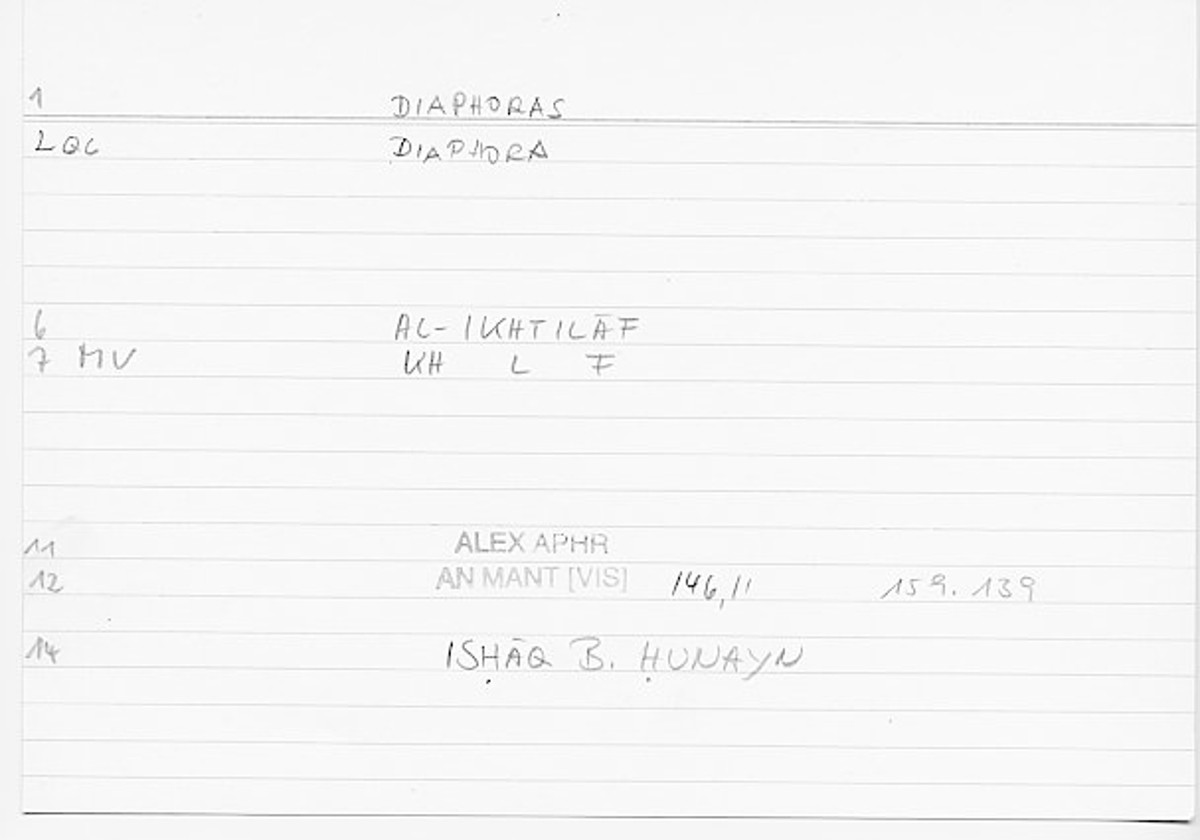 1 DIAPHORAS
LQC DIAPHORA
6 AL-IKHTILĀF
7 MV KH L F
11 ALEX APHR
12 AN MANT [VIS] 146,11 159.139
14 ISḤĀQ B. ḤUNAYN